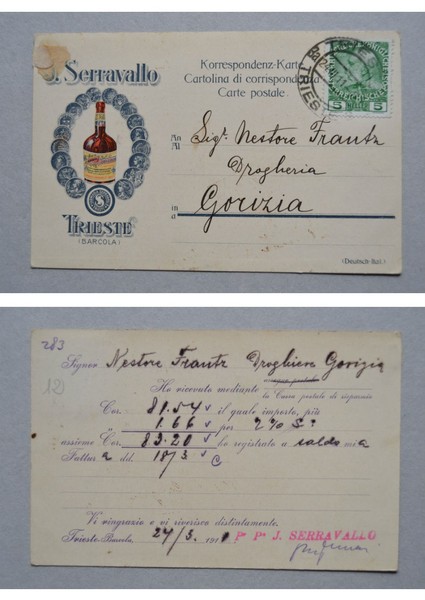 J. Serravallo
TRIESTE
(BARCOLA)
Korrespondenz-Karte
Cartolina di corrispondenza
Carte postale.
5 5
TRIES
An
Al
Sigr. Nestore Frantz
Drogheria
in
a
Gorizia
(Deutsch-Ital.)
283
Signor Nestore Frantz Droghiere Gorizia
12)
Ho ricevuto mediante
la Cassa postale di risparmio
Cor. 81.54 il quale importo, più
" 1.66 per 2% S.
assieme Cor. 83.20 ho registrato a saldo mia
Fattura dd. 18/3 c
Vi ringrazio e vi riverisco distintamente.
Trieste-Barcola, 24/3. 191
Pr Pa J. SERRAVALLO